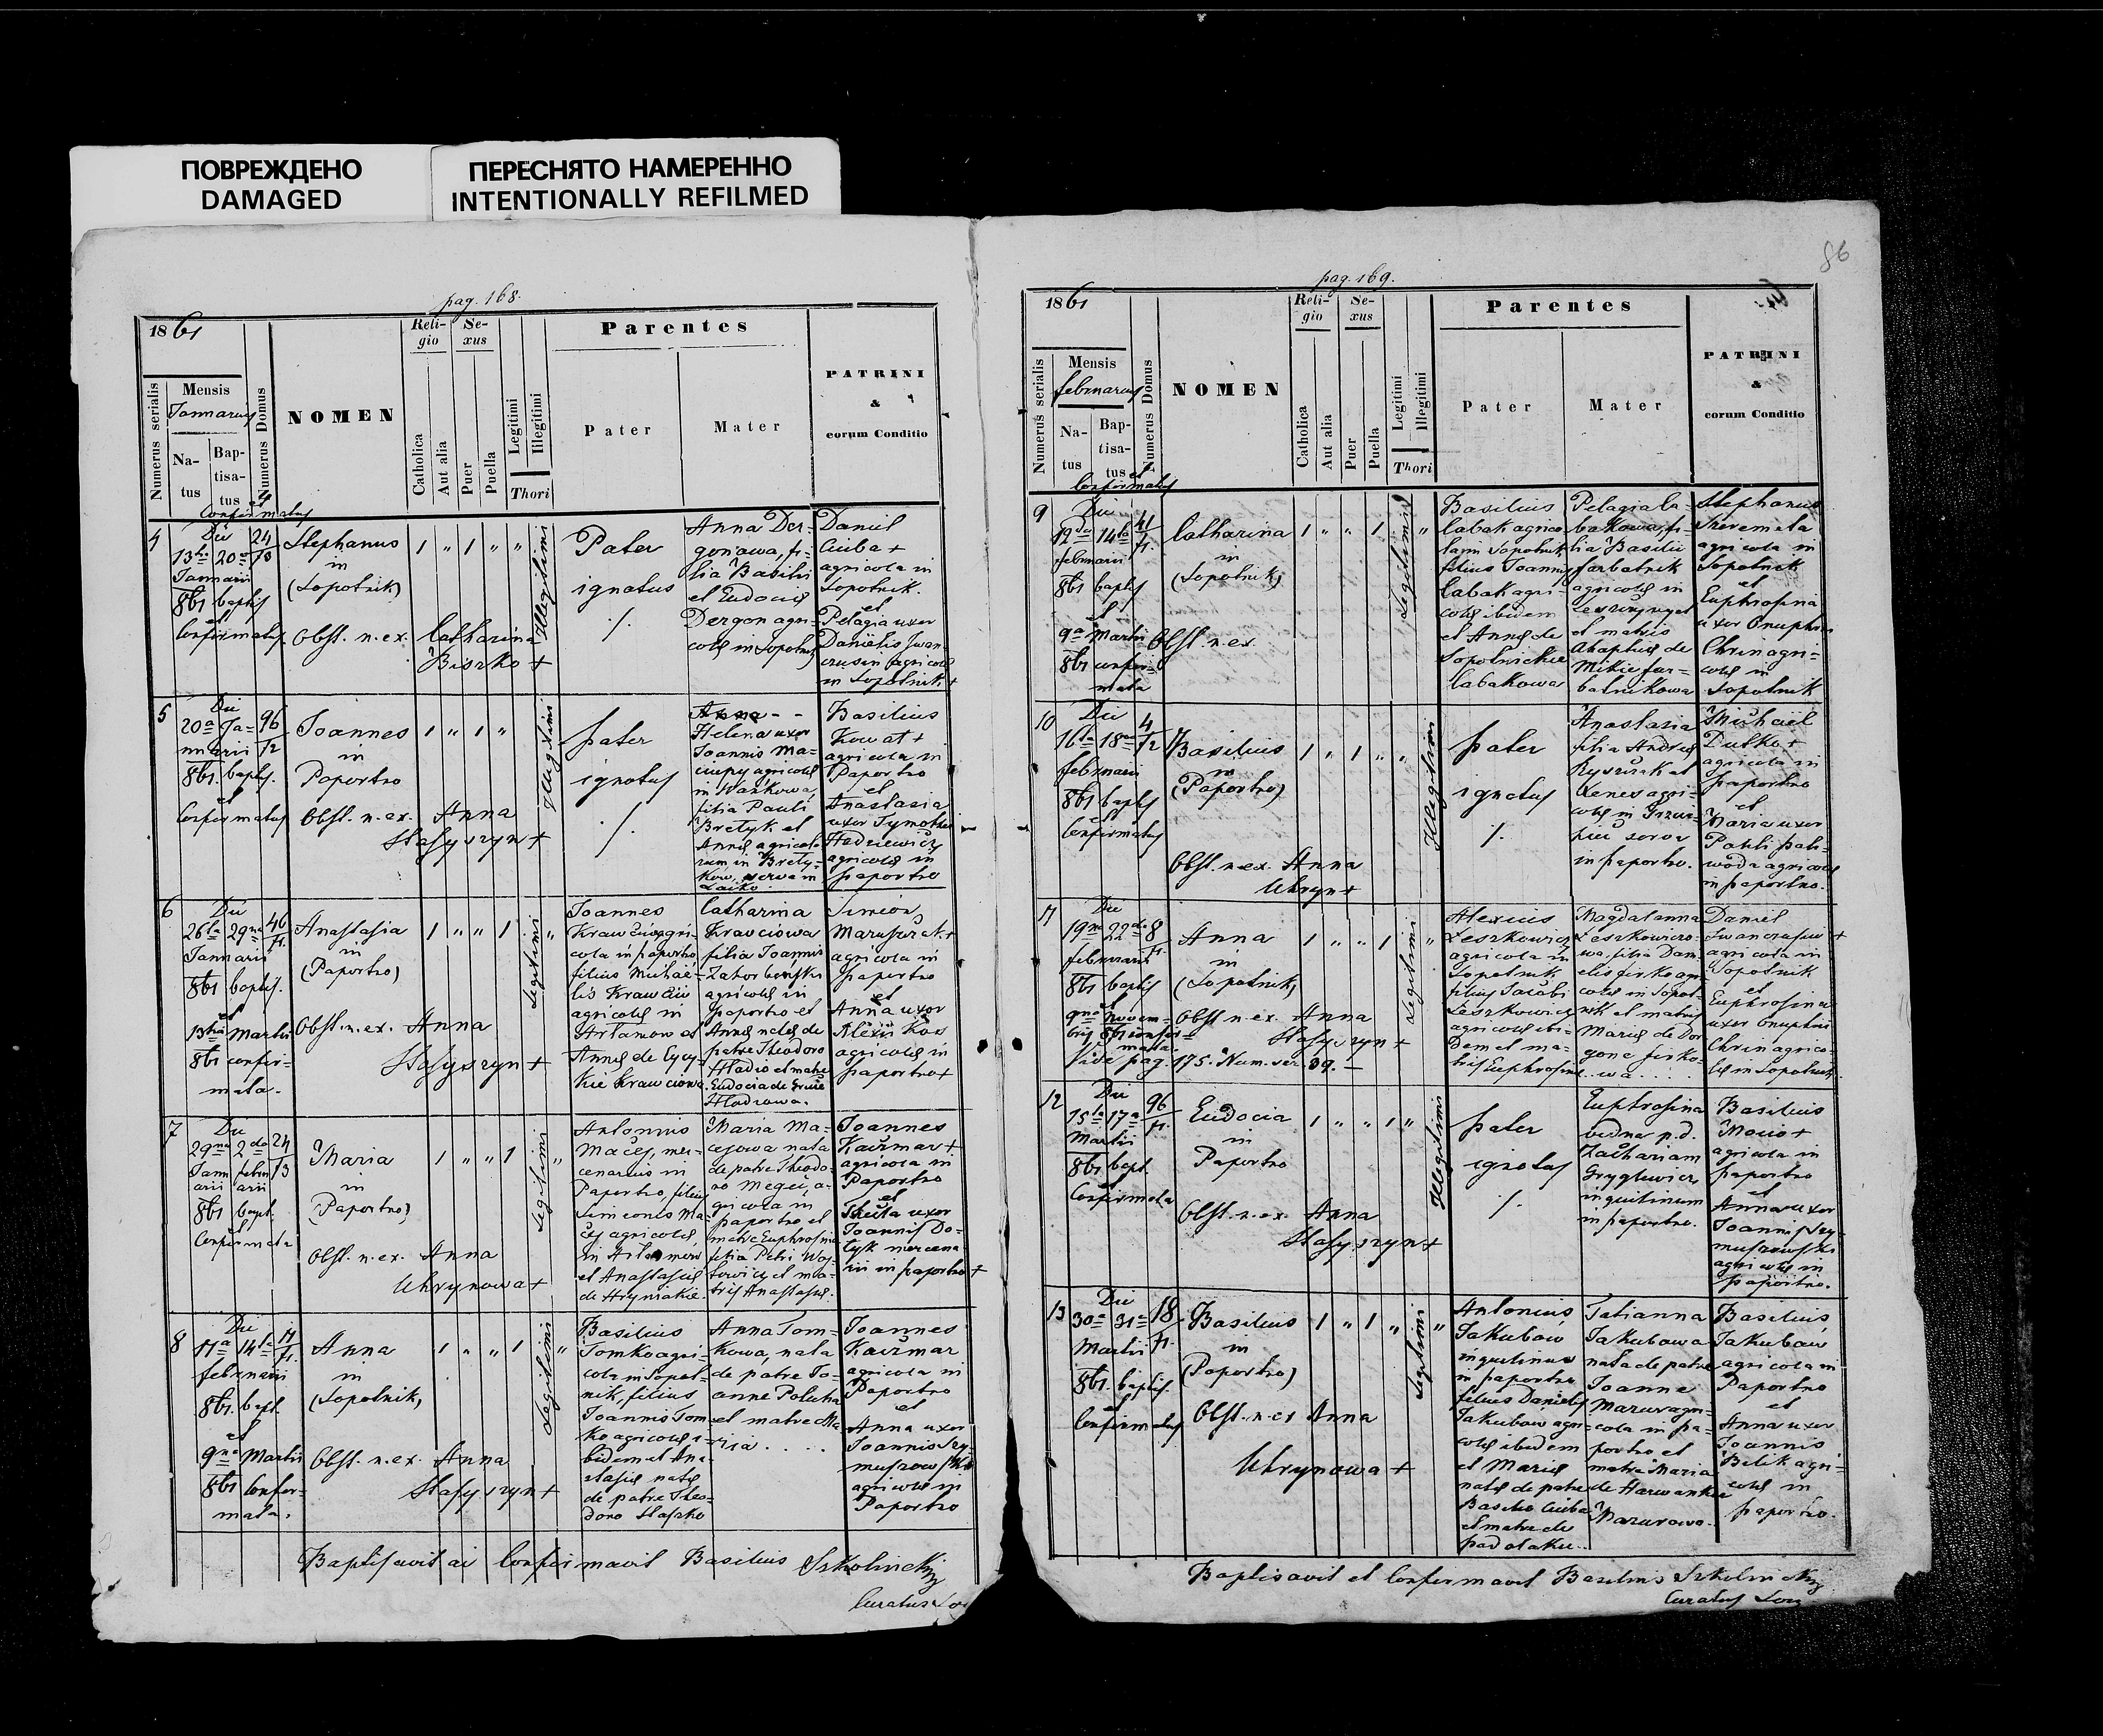 ПОВРЕЖДЕНО
DAMAGED
ПЕРЕСНЯТО НАМЕРЕННО
INTENTIONALLY REFILMED
86
pag. 168.
1861
Numerus serialis
Mensis
Januarius
Natus
Baptisatus
et
Confirmatus
Numerus Domus
NOMEN
Religio
Catholica
Aut alia
Sexus
Puer
Puella
Legitimi
Illegitimi
Thori
Parentes
Pater
Mater
PATRINI
&
eorum Conditio
4
Die
13tia 20a
Januarii
861 baptis
et
Confirmatus
24
Stephanus
in
(Sopotnik)
Obst. n. ex. Catharina
Biszko +
1 " 1 " "
Illegitimi
Pater
ignotus
./.
Anna Der-
gonowa, fi-
lia Basilii
et Eudociæ
Dergon agri-
colæ in Sopotnik
Daniel
Ciuba +
agricola in
Sopotnik.
et
Pelagia uxor
Danielis
agricolæ
in Sopotnik +
5
Die
20a Ja-
nuarii
861. baptis.
et
Confirmatus
96
/12
Joannes
in
Paportno
Obst. n. ex. Anna
Stasyszyn +
1 " 1 "
Illegitimi
pater
ignotus
./.
Helena uxor
Joannis Ma-
agricolæ
in Wankowa,
filia Pauli
Bretyk et
Annæ agricola-
rum in
serva in
Basilius
Kowat +
agricola in
Paportno
et
Anastasia
uxor Tymothei
Hadziewicz
agricolæ in
paportno
6
Die
26ta 29na
Januarii
861 baptis.
et
13tia Martii
861 confir-
mata.
46
/1.
Anastasia
in
(Paportno)
Obst. n. ex. Anna
Stasyszyn +
1 " " 1
Legitimi "
Joannes
Krawciw agri-
cola in paportno
filius Michaë-
lis Krawciw
agricolæ in
Artamow et
Annæ de
Krawciowa
Catharina
Krawciowa
filia Joannis
agricolæ in
paportno et
Annæ natæ de
patre Theodoro
Hladio et matre
Eudocia de
Hladiowa.
Simion
agricola in
paportno
et
Anna uxor
Alexii Kos
agricolæ in
paportno +
7
Die
29na 2da
Janu febru
arii arii
861 bapt.
et
Confirmata
24
/13
Maria
in
(Paportno)
Obst. n. ex. Anna
Uhrynowa +
1 " " 1
Legitimi "
Antonius
Maćej, mer-
cenarius in
Paportno, filius
Simeonis Ma-
ćej agricolæ,
in
et Anastasiæ
de Hryniakie.
Maria Ma-
cejowa nata
de patre Theodo-
ro a-
gricola in
paportno et
matre Euphrosina
filia Petri
et ma-
tris Anastasiæ.
Joannes
Kaczmar +
agricola in
Paportno
et
Thecla uxor
Joannis
mercena
rii in paportno +
8
Die
11a 14ta
februarii
861. bapt.
et
9na Martii
861 confir-
mata.
/1.
Anna
in
(Sopotnik)
Obst. n. ex. Anna
Stasyszyn +
1 " " 1
Legitimi "
Basilius
Tomko agri-
cola in Sopot-
nik, filius
Joannis Tom
ko agricolæ i-
bidem et Ana-
stasiæ natæ
de patre Theo-
doro Staszko
Anna Tom-
kowa, nata
de patre Jo-
anne
et matre Ma
ria . . . .
Joannes
Kaczmar
agricola in
Paportno
et
Anna uxor
Joannis Szy-
agricolæ in
Paportno
Baptisavit ac Confirmavit Basilius Szkolnicki
Curatus
pag. 169.
1861
Numerus serialis
Mensis
februarius
Natus
Baptisatus
et
Confirmatus
Numerus Domus
NOMEN
Religio
Catholica
Aut alia
Sexus
Puer
Puella
Legitimi
Illegitimi
Thori
Parentes
Pater
Mater
PATRINI
&
eorum Conditio
9
Die
12da 14ta
februarii
861 baptis
et
9na Martii
861 confir-
mata
41
/1.
Catharina
in
(Sopotnik)
Obst. n. ex.
1 " " 1
Legitimi "
Basilius
Labak agrico
la in Sopotnik
filius Joannis
Labak agri-
colæ ibidem
et Annæ de
Labakowa
Pelagia La-
bakowa, fi-
lia Basilii
agricolæ in
et
et matris
Ahaphiæ de
Mikie
Stephanus
Szeremeta
agricola in
Sopotnik
et
Euphrosina
uxor Onuphrii
Chrin agri-
colæ in
Sopotnik
10
Die
16ta 18va
februarii
861 baptis
et
Confirmatus
4
/12
Basilius
in
(Paportno)
Obst. n. ex. Anna
Uhryn +
1 " 1 " "
Illegitimi
pater
ignotus
./.
Anastasia
filia Andreæ
et
Xenes agri-
colæ in
in paportno.
Michaël
Dutko +
agricola in
paportno
et
Maria uxor
Pauli Pali-
woda agricolæ
in paportno.
11
Die
19na 22da
februarii
861 baptis
et
9na Novem-
bris 861 confir-
mata
8
/1.
Anna
in
(Sopotnik)
Obst n. ex. Anna
Stasyszyn +
Vide pag. 175. Num. ser. 39. —
1 " " 1
Legitimi "
Alexius
Leszkowicz
agricola in
Sopotnik
filius Jacobi
Leszkowicz
agricolæ ibi-
dem et ma-
tris Euphrosinæ
Magdalanna
Leszkowiczo-
wa, filia Dani
elis agri
colæ in Sopot-
nik et matris
Mariæ de Der
gone
wa . . . .
Daniel
agricola in
Sopotnik
et
Euphrosina
uxor Onuphrii
Chrin agrico-
læ in Sopotnik.
12
Die
15ta 17a
Martii
861 bapt.
et
Confirmata
96
/1.
Eudocia
in
Paportno
Obst. n. ex. Anna
Stasyszyn +
1 " " 1 "
Illegitimi
pater
ignotus
./.
Euphrosina
vidua p. d.
Zachariam
Gryglewicz
inquilinum
in paportno.
Basilius
+
agricola in
paportno
et
Anna uxor
Joannis Szy-
agricolæ in
paportno.
13
Die
30a 31a
Martii
861. baptis.
et
Confirmatus
18
/1.
Basilius
in
(Paportno)
Obst. n. ex Anna
Uhrynowa +
1 " 1 "
Legitimi "
Antonius
Jakubow
inquilinus
in paportno
filius Danielis
Jakubow agri-
colæ ibidem
et Mariæ
natæ de patre
Ciuba
et matre de
Tatianna
Jakubowa
nata de patre
Joanne
Mazur agri-
cola in pa-
portno et
matre Maria
de
Mazurowa.
Basilius
Jakubow
agricola in
Paportno
et
Anna uxor
Joannis
Bilik agri-
colæ in
paportno.
Baptisavit et Confirmavit Basilius Szkolnicki
Curatus